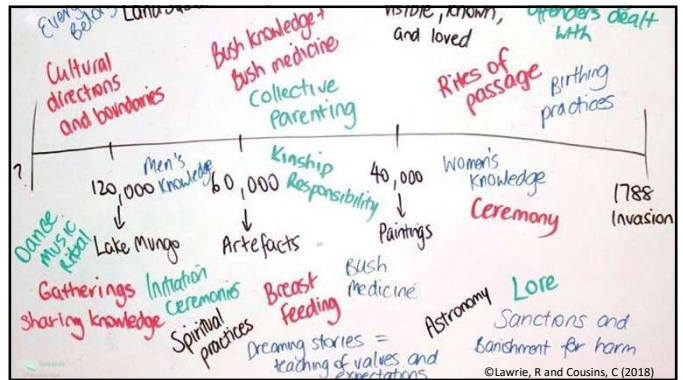 Every
Belon
visible, known,
and loved
Offenders dealt
with
Cultural
directions
and boundaries
Bush Knowledge +
Bush medicine
Collective
Parenting
Rites of
passage
Birthing
practices
?
120,000
Lake Mungo
Men's
Knowledge
60,000
Artefacts
Kinship
Responsibility
40,000
Paintings
Women's
Knowledge
Ceremony
1788
Invasion
Dance
Music
Ritual
Gatherings
Sharing knowledge
Initiation
Ceremonies
Spiritual
practices
Breast
feeding
Bush
Medicine
Dreaming stories =
teaching of values and
expectations
Astronomy
Lore
Sanctions and
Banishment for harm
©Lawrie, R and Cousins, C (2018)